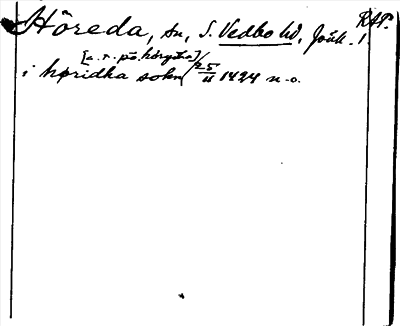 Höreda, sn, S. Vedbo hd, Jönk. l. RAP.
[a. r. på. höryðha]
i høridha sokn 25/11 1424 n.o.